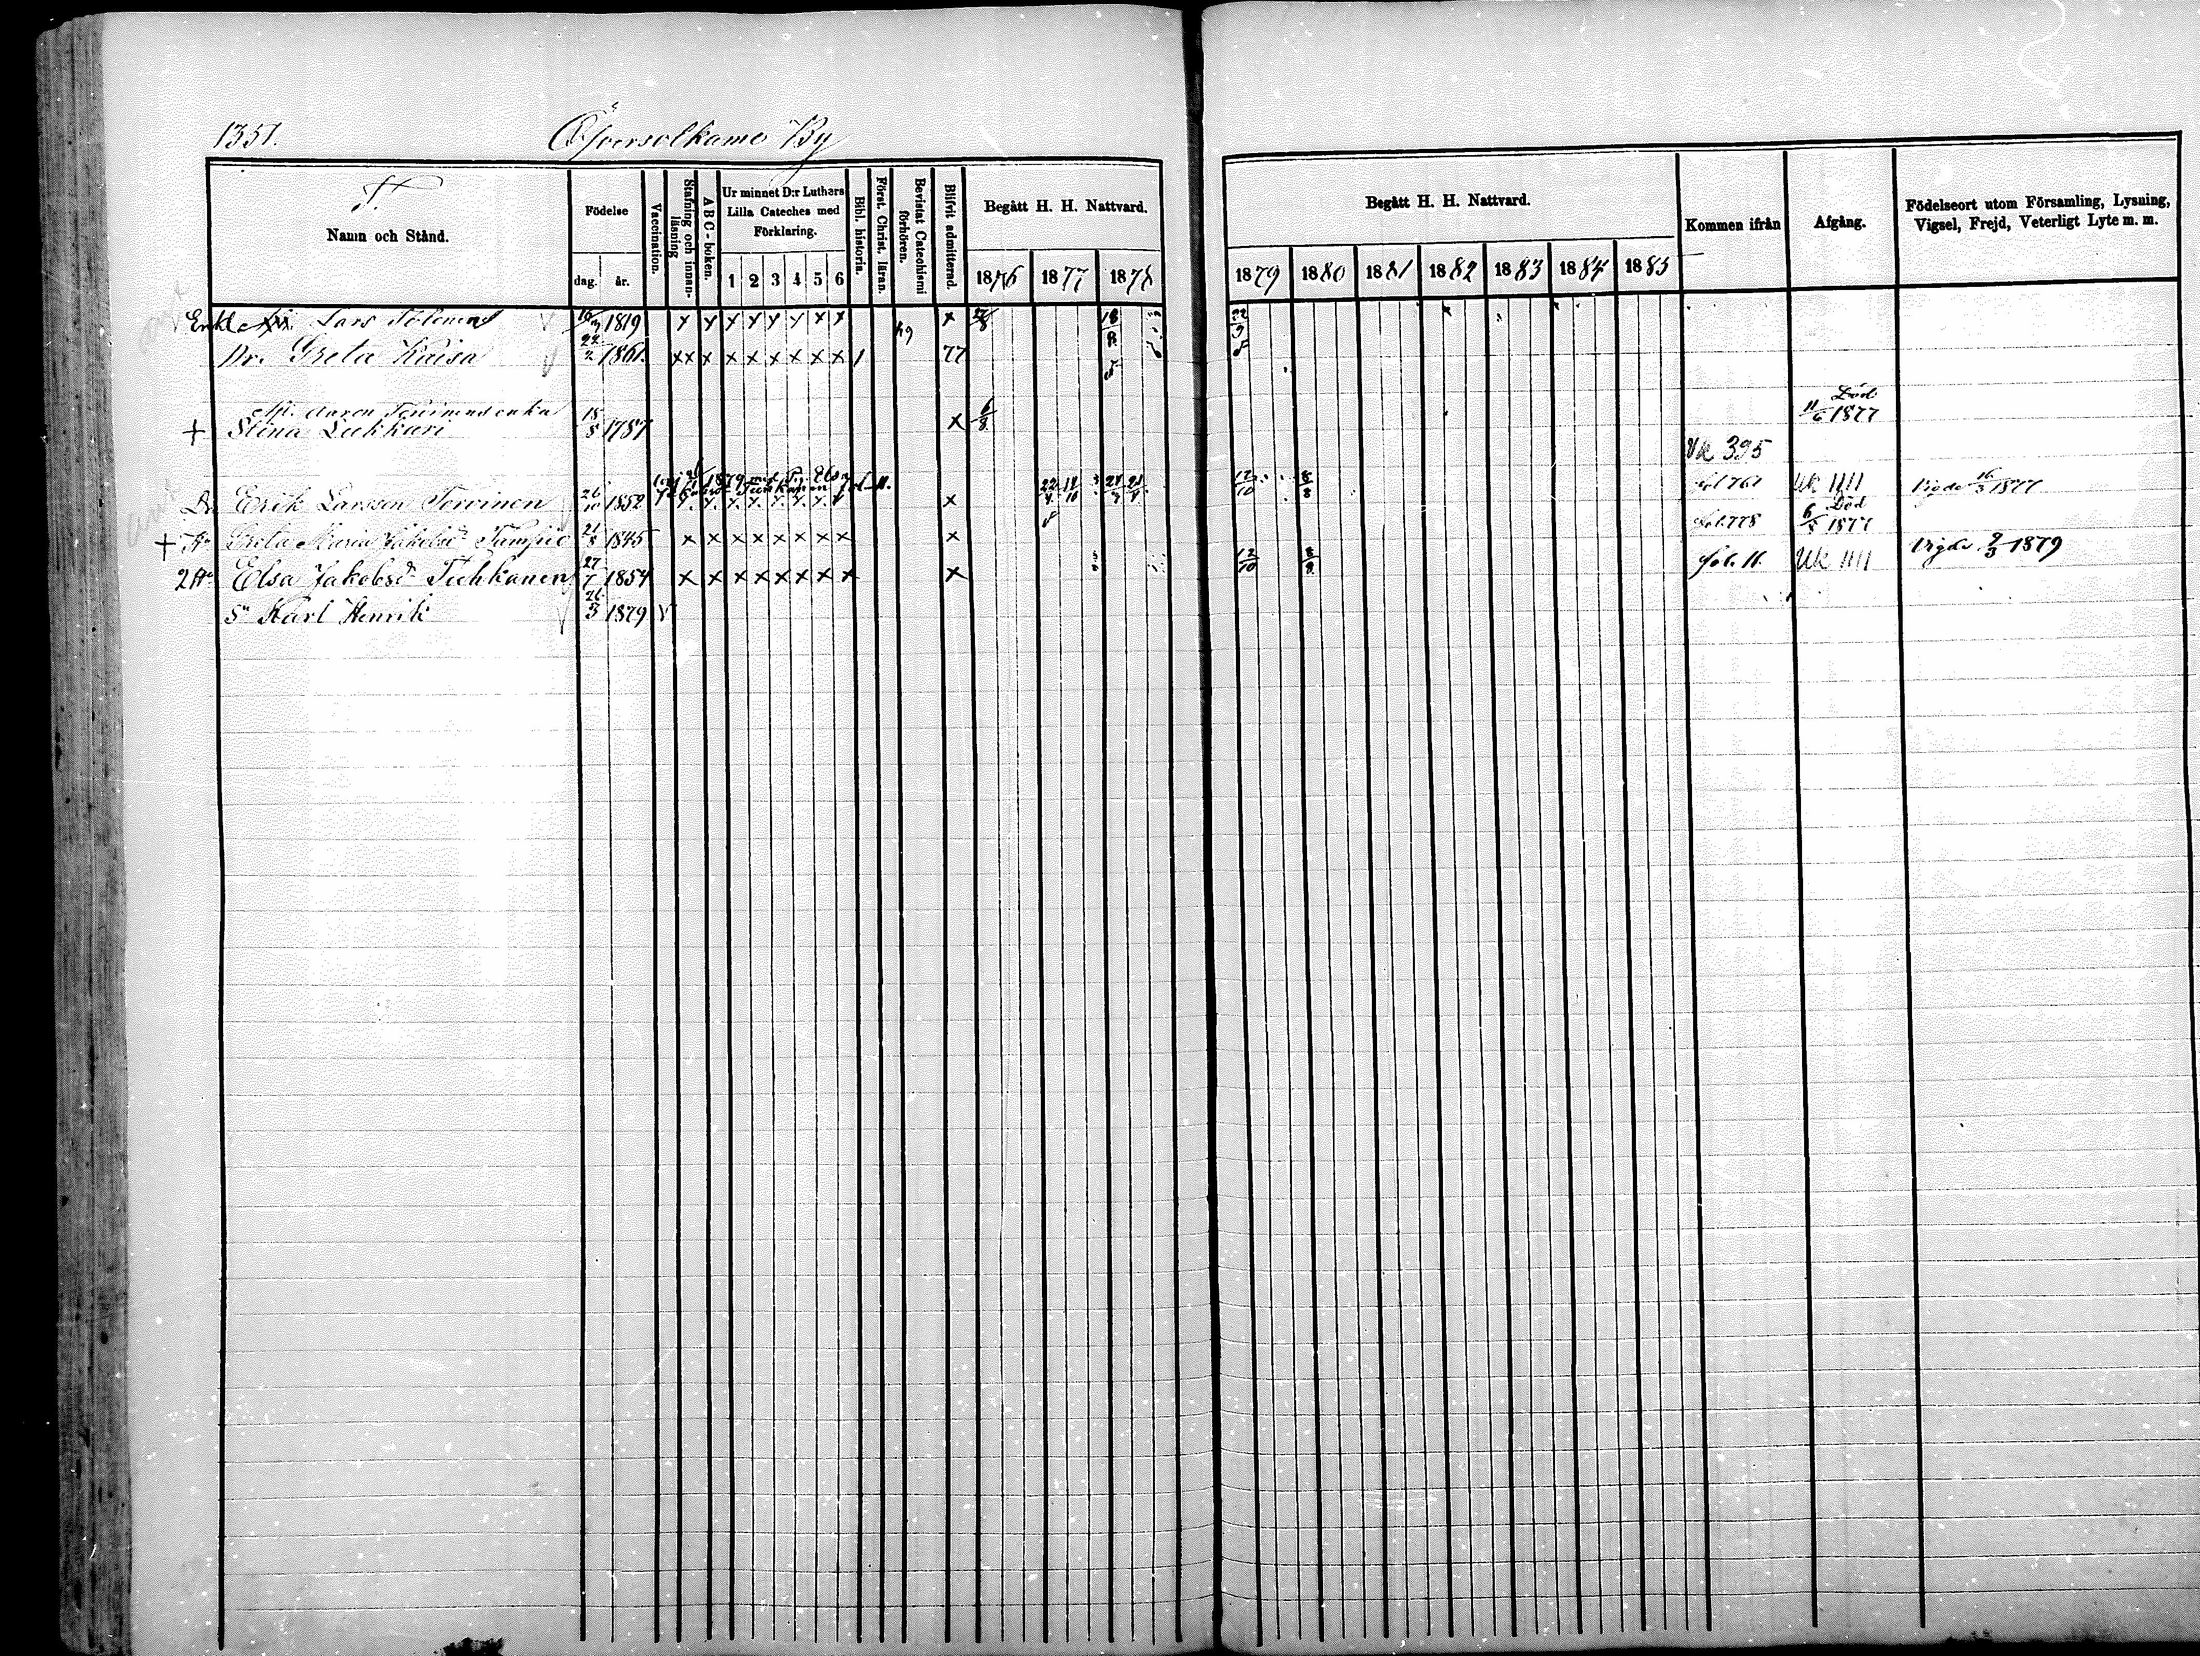 1351. Öfversolkamo By
T.
Namn och Stånd.
Födelse
dag. år.
Vaccination.
Stafning och innanläsning
A B C-boken.
Ur minnet D:r Luthers Lilla Cateches med Förklaring.
1 2 3 4 5 6
Bibl. historia.
Först. Christ. läran.
Bevistat Catechismi förhören.
Blifvit admitterad.
Begått H. H. Nattvard.
1876 1877 1878
Begått H. H. Nattvard.
1879 1880 1881 1882 1883 1884 1885
Kommen ifrån
Afgång.
Födelseort utom Församling, Lysning, Vigsel, Frejd, Veterligt Lyte m. m.
Enkl. Lars 1819 x x x x x x x x x 18/8 22/9
Dr. Greta Kaisa 22/2 1861. x x x x x x x x x 1 77
Aaron enka Död
+ Stina Lukkari 18/8 1787 x 6/8 11/6 1877
Uk 395
1879 Elsa
Erik Larsson Tervinen 26/10 1852 x 12/10 8/8 fol 761 Uk 1111 Vigde 16/3 1877
Död
+ Hu Greta Maria Jakobsd. 21/8 1845 x x x x x x x x x fol. 778 6/8 1877
2 Hu Elsa Jakobsd. Tuhkanen 27/7 1854 x x x x x x x x x 12/10 8/8 fol. 11. Uk 1111 Vigde 9/3 1879
Sn Karl Henrik 26/3 1879 v